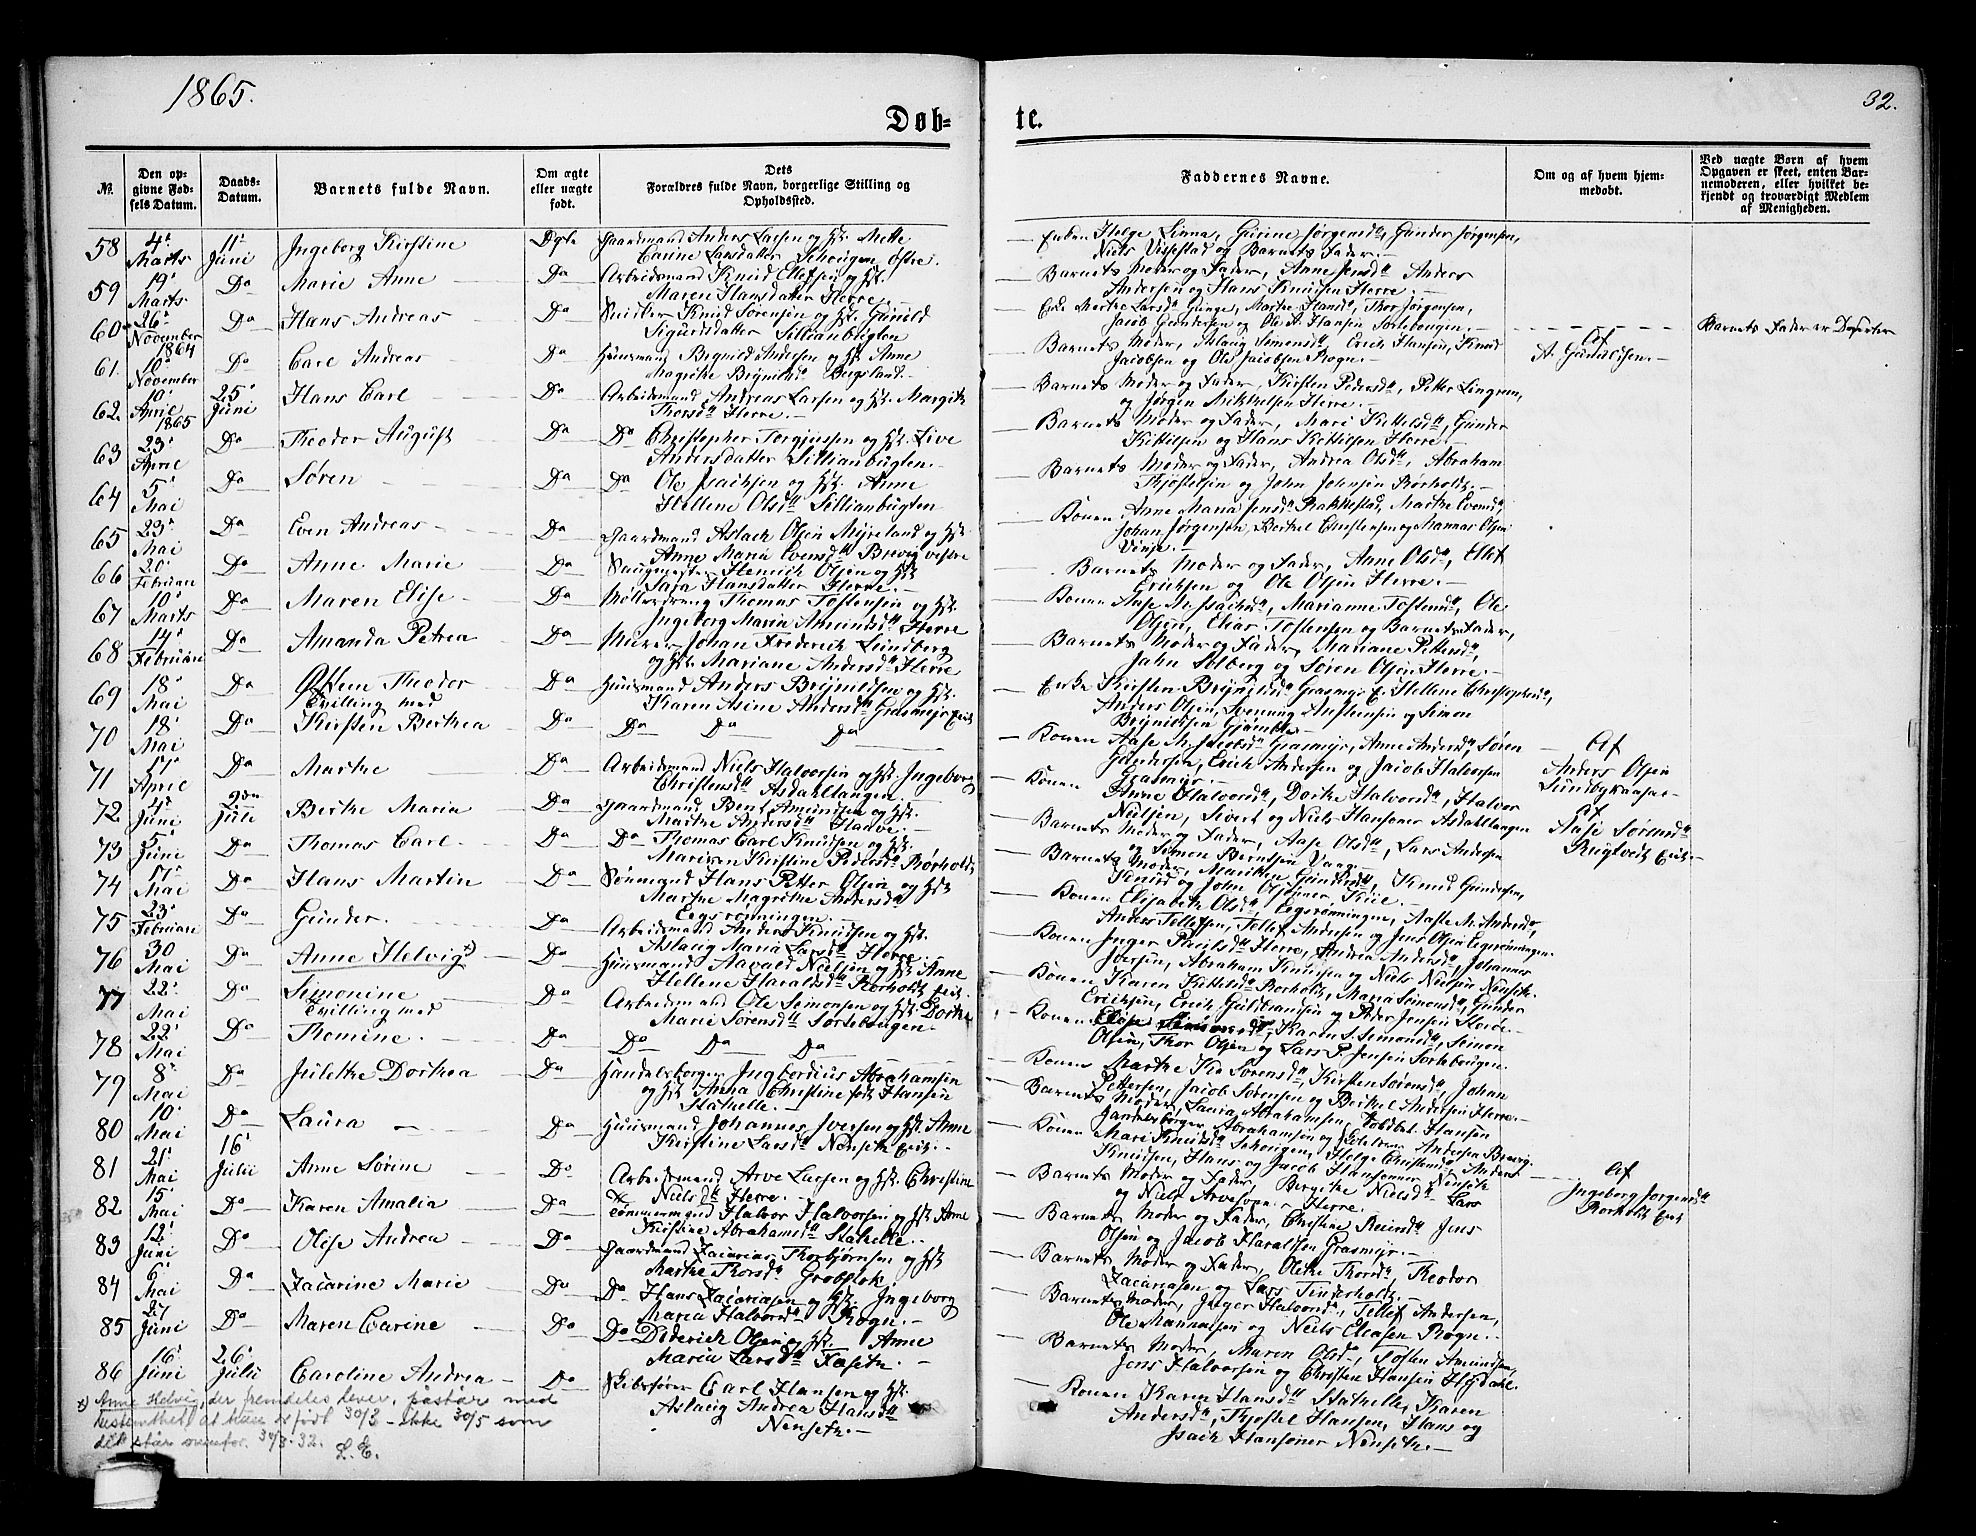 1865.
32.
Døb-
te.
№
Den op-
givne Fød-
sels Datum.
Daabs-
Datum.
Barnets fulde Navn.
Om ægte
eller uægte
født.
Dets
Forældres fulde Navn, borgerlige Stilling og
Opholdssted.
Faddernes Navne.
Om og af hvem hjem-
medøbt.
Ved uægte Børn af hvem
Opgaven er skeet, enten Bar-
nemoderen, eller hvilket be-
kjendt og troværdigt Medlem
af Menigheden.
58 4' Marts 11' Juni Ingeborg Kirstine Ægte Gaardmand Anders Larsen og Hst. Mette
Larsdatter østre.
59 19' Marts Do Marie Anne Do Arbeidsmand Knud Ellefsen og Hst.
Maren Hansdatter Herre.
60 26' November 1864 Do Hans Andreas Do Knud Sørensen og Hst. Gunild
Sigurdsdatter
61 10' November Do Carl Andreas Do Huusmand Brynild Andersen og Hst. Anne
Magrethe Brynildsd.
62 10' April 1865 25' Juni Hans Carl Do Arbeidsmand Andreas Larsen og Hst. Margith
Thorsd. Herre.
63 23' April Do Theodor August Do Do Christopher Torgjusen og Hst. Live
Andersdatter
64 5' Mai Do Søren Do Do Ole Isachsen og Hst. Anne
Hellene Olsd.
65 23' Mai Do Even Andreas Do Gaardmand Aslach Olsen Myreland og Hst.
Anne Maria Evensd. Brevig vestre
66 20' Februari Do Anne Marie Do Saugmester Henrich Olsen og Hst.
Sara Hansdatter Herre.
67 10' Marts Do Maren Elise Do Thomas Tostensen og Hst.
Ingeborg Maria Amundsd. Herre
68 14' Februari Do Amanda Petrea Do Murer Johan Frederik Lundberg
og Hst. Mariane Andersd. Herre
69 18' Mai Do Theodor Do Huusmand Anders Brynildsen og Hst.
Tvilling med
Karen Asine Andersd.
70 18' Mai Do Kirsten Berthea Do Do Do Do
71 17' April Do Marthe Do Arbeidsmand Niels Halvorsen og Hst. Ingeborg
Christensd. Asdahltangen
72 4' Juni 9de Juli Berthe Maria Do Gaardmand Bent Amundsen og Hst.
Marthe Andersd.
73 5' Juni Do Thomas Carl Do Do Thomas Carl Knudsen og Hst.
Maren Kirstine Pedersd. Rørholt
74 17' Mai Do Hans Martin Do Sømand Hans Petter Olsen og Hst.
Marthe Magrethe Andersd.
Eegsrønningen
75 23' Februari Do Gunder Do Arbeidsmand Anders Knudsen og Hst.
Aslaug Maria Larsd. Herre
76 30 Mai Do Anne Helvig x) Do Huusmand Aavald Nielsen og Hst. Anne
Hellene Haraldsd. Rørholt Eie.
77 22' Mai Do Simonine Do Arbeidsmand Ole Simonsen og Hst. Dorthe
Tvilling med
Marie Sørensd. Sortebougen.
78 22' Mai Do Thomine Do Do Do Do
79 8' Mai Do Julethe Dorthea Do Handelsborger Ingbordius Abrahamsen
og Hst. Anna Christine født Hansen
Stathelle.
80 10' Mai Do Laura Do Huusmand Johannes Iversen og Hst. Anne
Kirstine Larsd. Nenseth Eie.
81 21' Mai 16' Julii Anne Sørine Do Arbeidsmand Arve Larsen og Hst. Christine
Nielsd. Herre.
82 15' Mai Do Karen Amalia Do Tømmermand Halvor Halvorsen og Hst. Anne
Kirstine Abrahamsd. Stathelle.
83 12' Juni Do Olise Andrea Do Gaardmand Zacarias Thorbjørnsen og Hst.
Marthe Thorsd. Grobstok.
84 6' Mai Do Zacarine Marie Do Do Hans Zacariasen og Hst. Ingeborg
Maria Halvorsd. Rogn.
85 27 Juni Do Maren Carine Do Do Diderich Olsen og Hst. Anne
Maria Larsd.
86 16' Juni 26' Julii Caroline Andrea Do Skibsfører Carl Hansen og Hst.
Aslaug Andrea Hansd.
Nenseth.
x) Anne Helvig, der fremdeles lever, påstår med
bestemthet at hun er født 30/3 - ikke 30/5 som
det står ovenfor. 32.
L. E.
Enken Helge Linna, Gurine Jørgensd., Gunder Jørgensen,
Niels og Barnets Fader.
Barnets Moder og Fader, Anne Jensd. Anders
Andersen og Hans Knudsen Herre.
Enke Marthe Larsd. Marthe Hansd., Thor Jørgensen,
Jacob Gundersen og Ole A. Hansen Sortebougen.
Barnets Moder, Aslaug Simonsd., Erich Hansen, Knud
Jacobsen og Ole Jacobsen Rogn.
Barnets Moder og Fader, Kirsten Pedersd., Petter Lingren,
og Jørgen Mikkelsen Herre.
Barnets Moder og Fader, Mari Kittilsd., Gunder
Kittilsen og Hans Kittilsen Herre.
Barnets Moder og Fader, Andrea Olsd., Abraham
Kjostelsen og John Johnsen Rørholt.
Konen Anne Maria Jensd. Rakkestad, Marthe Evensd.
Johan Jørgensen, Berthel Christensen og Mannas Olsen
Barnets Moder og Fader, Anne Olsd., Ellef
Erichsen og Ole Olsen Herre.
Konen Aase M. Isachsd., Marianne Tostensd., Ole
Olsen, Elias Tostensen og Barnets Fader,
Barnets Moder og Fader, Mariane Pettersd.,
John Solberg og Søren Olsen Herre.
Enke Kirsten Brynildsd. Hellene Christophersd.,
Anders Olsen, Svenning Anstensen og Simon
Brynildsen
Konen Aase M. Jacobsd. Grasmyr, Anne Andersd., Søren
Gundersen, Erich Andersen og Jacob Halvorsen
Grasmyr.
Konen Anne Halvorsd., Dorthe Halvorsd., Halvor
Nielsen, Sivert og Niels Hansener Asdahltangen
Barnets Moder og Fader, Aase Olsd., Lars Andersen
og Simon Berntsen
Barnets Moder, Mariken Gundersd., Knud Gundersen,
Knud og John Olsener
Konen Elisabeth Olsd. Eegsrønningen, Aaste M. Andersd.,
Anders Tellefsen, Tellef Andersen og Jens Olsen Eegsrønningen
Konen Inger Poulsd. Herre, Andrea Andersd., Johannes
Iversen, Abraham Knudsen og Niels Nielsen Nenseth.
Konen Karen Kittilsd. Rørholt, Maria Simonsd., Gunder
Erichsen, Erich Guldbrandsen og Peder Jensen
Konen Karen S. Simonsd., Simon
Olsen, Thor Olsen og Lars P. Jensen Sortebougen.
Konen Marthe Kia Sørensd., Kirsten Sørensd., Johan
Pettersen, Jacob Sørensen og Berthel Andersen Herre.
Barnets Moder, Laura Abrahamsen, Hansen
Handelsborger Abrahamsen og Andersen Brevig.
Konen Mari Knudsd. Helge Christensd. Anders
Knudsen, Hans og Jacob Hansenner Nenseth
Barnets Moder og Fader, Bergithe Nielsd. Lars
og Niels Arvesønner Herre.
Barnets Moder og Fader, Christine Jens
Olsen og Jacob Haraldsen Grasmyr.
Barnets Moder og Fader, Olethe Thorsd., Theodor
Zacariasen og Lars Tinderholt.
Barnets Moder, Inger Halvorsd., Tellef Andersen,
Ole Mannasen og Niels Eliasen Rogn.
Barnets Moder, Maren Olsd., Tosten Amundsen,
Jens Halvorsen og Christen Hansen
Konen Karen Hansd. Stathelle, Karen
Andersd., Kjostel Hansen, Hans og
Isach Hansøner Nenseth.
Af
A. Gundersen.
Barnets Fader er
Af
Anders Olsen
Lundbykaasa
Af
Aase Sørensd.
Rugtvedt Eie.
Af
Ingeborg Jørgensd.
Rørholt Eie.